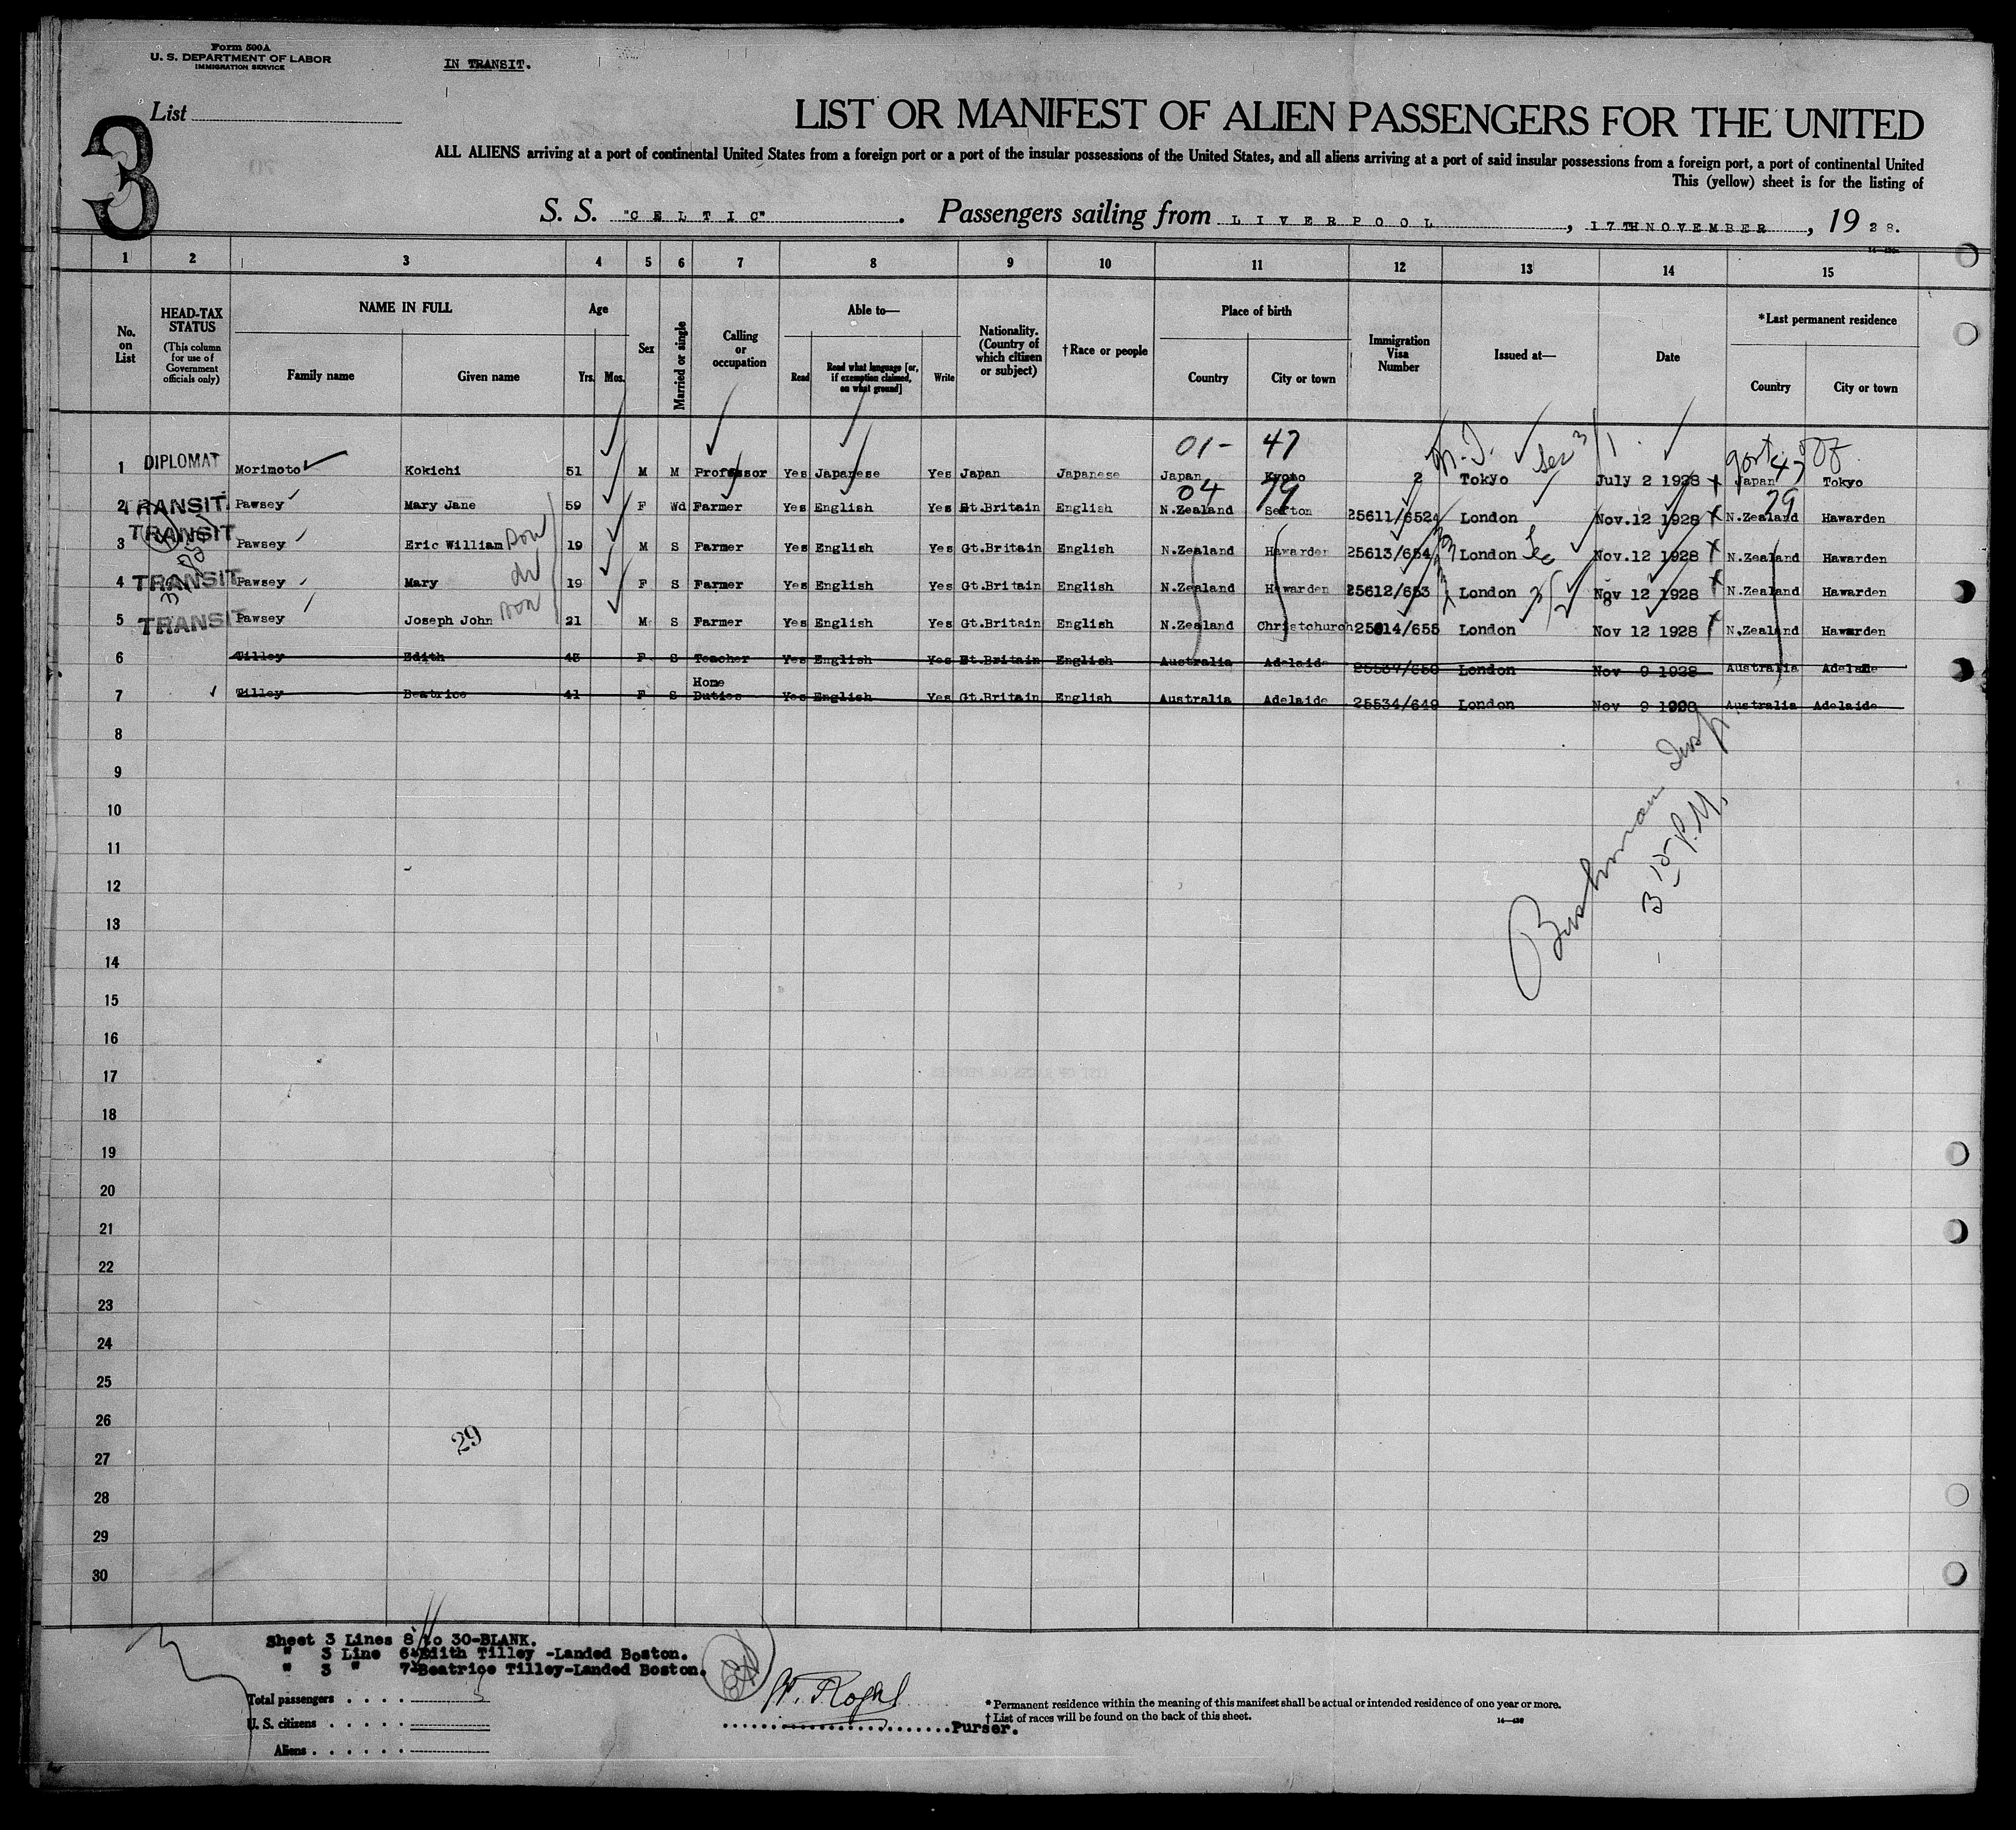 Form 500A
U. S. DEPARTMENT OF LABOR
IMMIGRATION SERVICE
IN TRANSIT.
List
3
LIST OR MANIFEST OF ALIEN PASSENGERS FOR THE UNITED
ALL ALIENS arriving at a port of continental United States from a foreign port or a port of the insular possessions of the United States, and all aliens arriving at a port of said insular possessions from a foreign port, a port of continental United
This (yellow) sheet is for the listing of
S. S. "CELTIC". Passengers sailing from LIVERPOOL, 17TH NOVEMBER, 1928.
1 2 3 4 5 6 7 8 9 10 11 12 13 14 15
No. on List
HEAD-TAX STATUS
(This column for use of Government officials only)
NAME IN FULL
Family name Given name
Age
Yrs. Mos.
Sex
Married or single
Calling or occupation
Able to—
Read Read what language [or, if exemption claimed, on what ground] Write
Nationality. (Country of which citizen or subject)
†Race or people
Place of birth
Country City or town
Immigration Visa Number
Issued at—
Date
*Last permanent residence
Country City or town
01- 47
1 DIPLOMAT Morimoto Kokichi 51 M M Professor Yes Japanese Yes Japan Japanese Japan Kyoto 2 Tokyo July 2 1928 Japan Tokyo
04 79 79
2 TRANSIT Pawsey Mary Jane 59 F Wd Farmer Yes English Yes Gt.Britain English N.Zealand Sefton 25611/652 London Nov.12 1928 N.Zealand Hawarden
3 TRANSIT Pawsey Eric William son 19 M S Farmer Yes English Yes Gt.Britain English N.Zealand Hawarden 25613/654 London Nov.12 1928 N.Zealand Hawarden
4 TRANSIT Pawsey Mary 19 F S Farmer Yes English Yes Gt.Britain English N.Zealand Hawarden 25612/653 London Nov 12 1928 N.Zealand Hawarden
5 TRANSIT Pawsey Joseph John son 21 M S Farmer Yes English Yes Gt.Britain English N.Zealand Christchurch 25614/655 London Nov 12 1928 N.Zealand Hawarden
6 Tilley Edith 43 F S Teacher Yes English Yes Gt.Britain English Australia Adelaide London Nov 9 1928 Australia Adelaide
7 Tilley Beatrice 41 F S Home Duties Yes English Yes Gt.Britain English Australia Adelaide 25534/649 London Nov 9 1928 Australia Adelaide
8
9
10
11
12
13
14
15
16
17
18
19
20
21
22
23
24
25
26
27
28
29
30
Insp
3 15 P.M.
29
Sheet 3 Lines 8 to 30-BLANK.
" 3 Line 6 Edith Tilley -Landed Boston.
" 3 " 7 Beatrice Tilley-Landed Boston.
Total passengers
U. S. citizens
Aliens
Purser.
* Permanent residence within the meaning of this manifest shall be actual or intended residence of one year or more.
† List of races will be found on the back of this sheet.